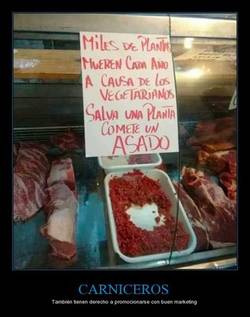 MILES DE PLANTAS
MUEREN CADA AÑO
A CAUSA DE LOS
VEGETARIANOS
SALVA UNA PLANTA
COMETE UN
ASADO
CARNICEROS
También tienen derecho a promocionarse con buen marketing